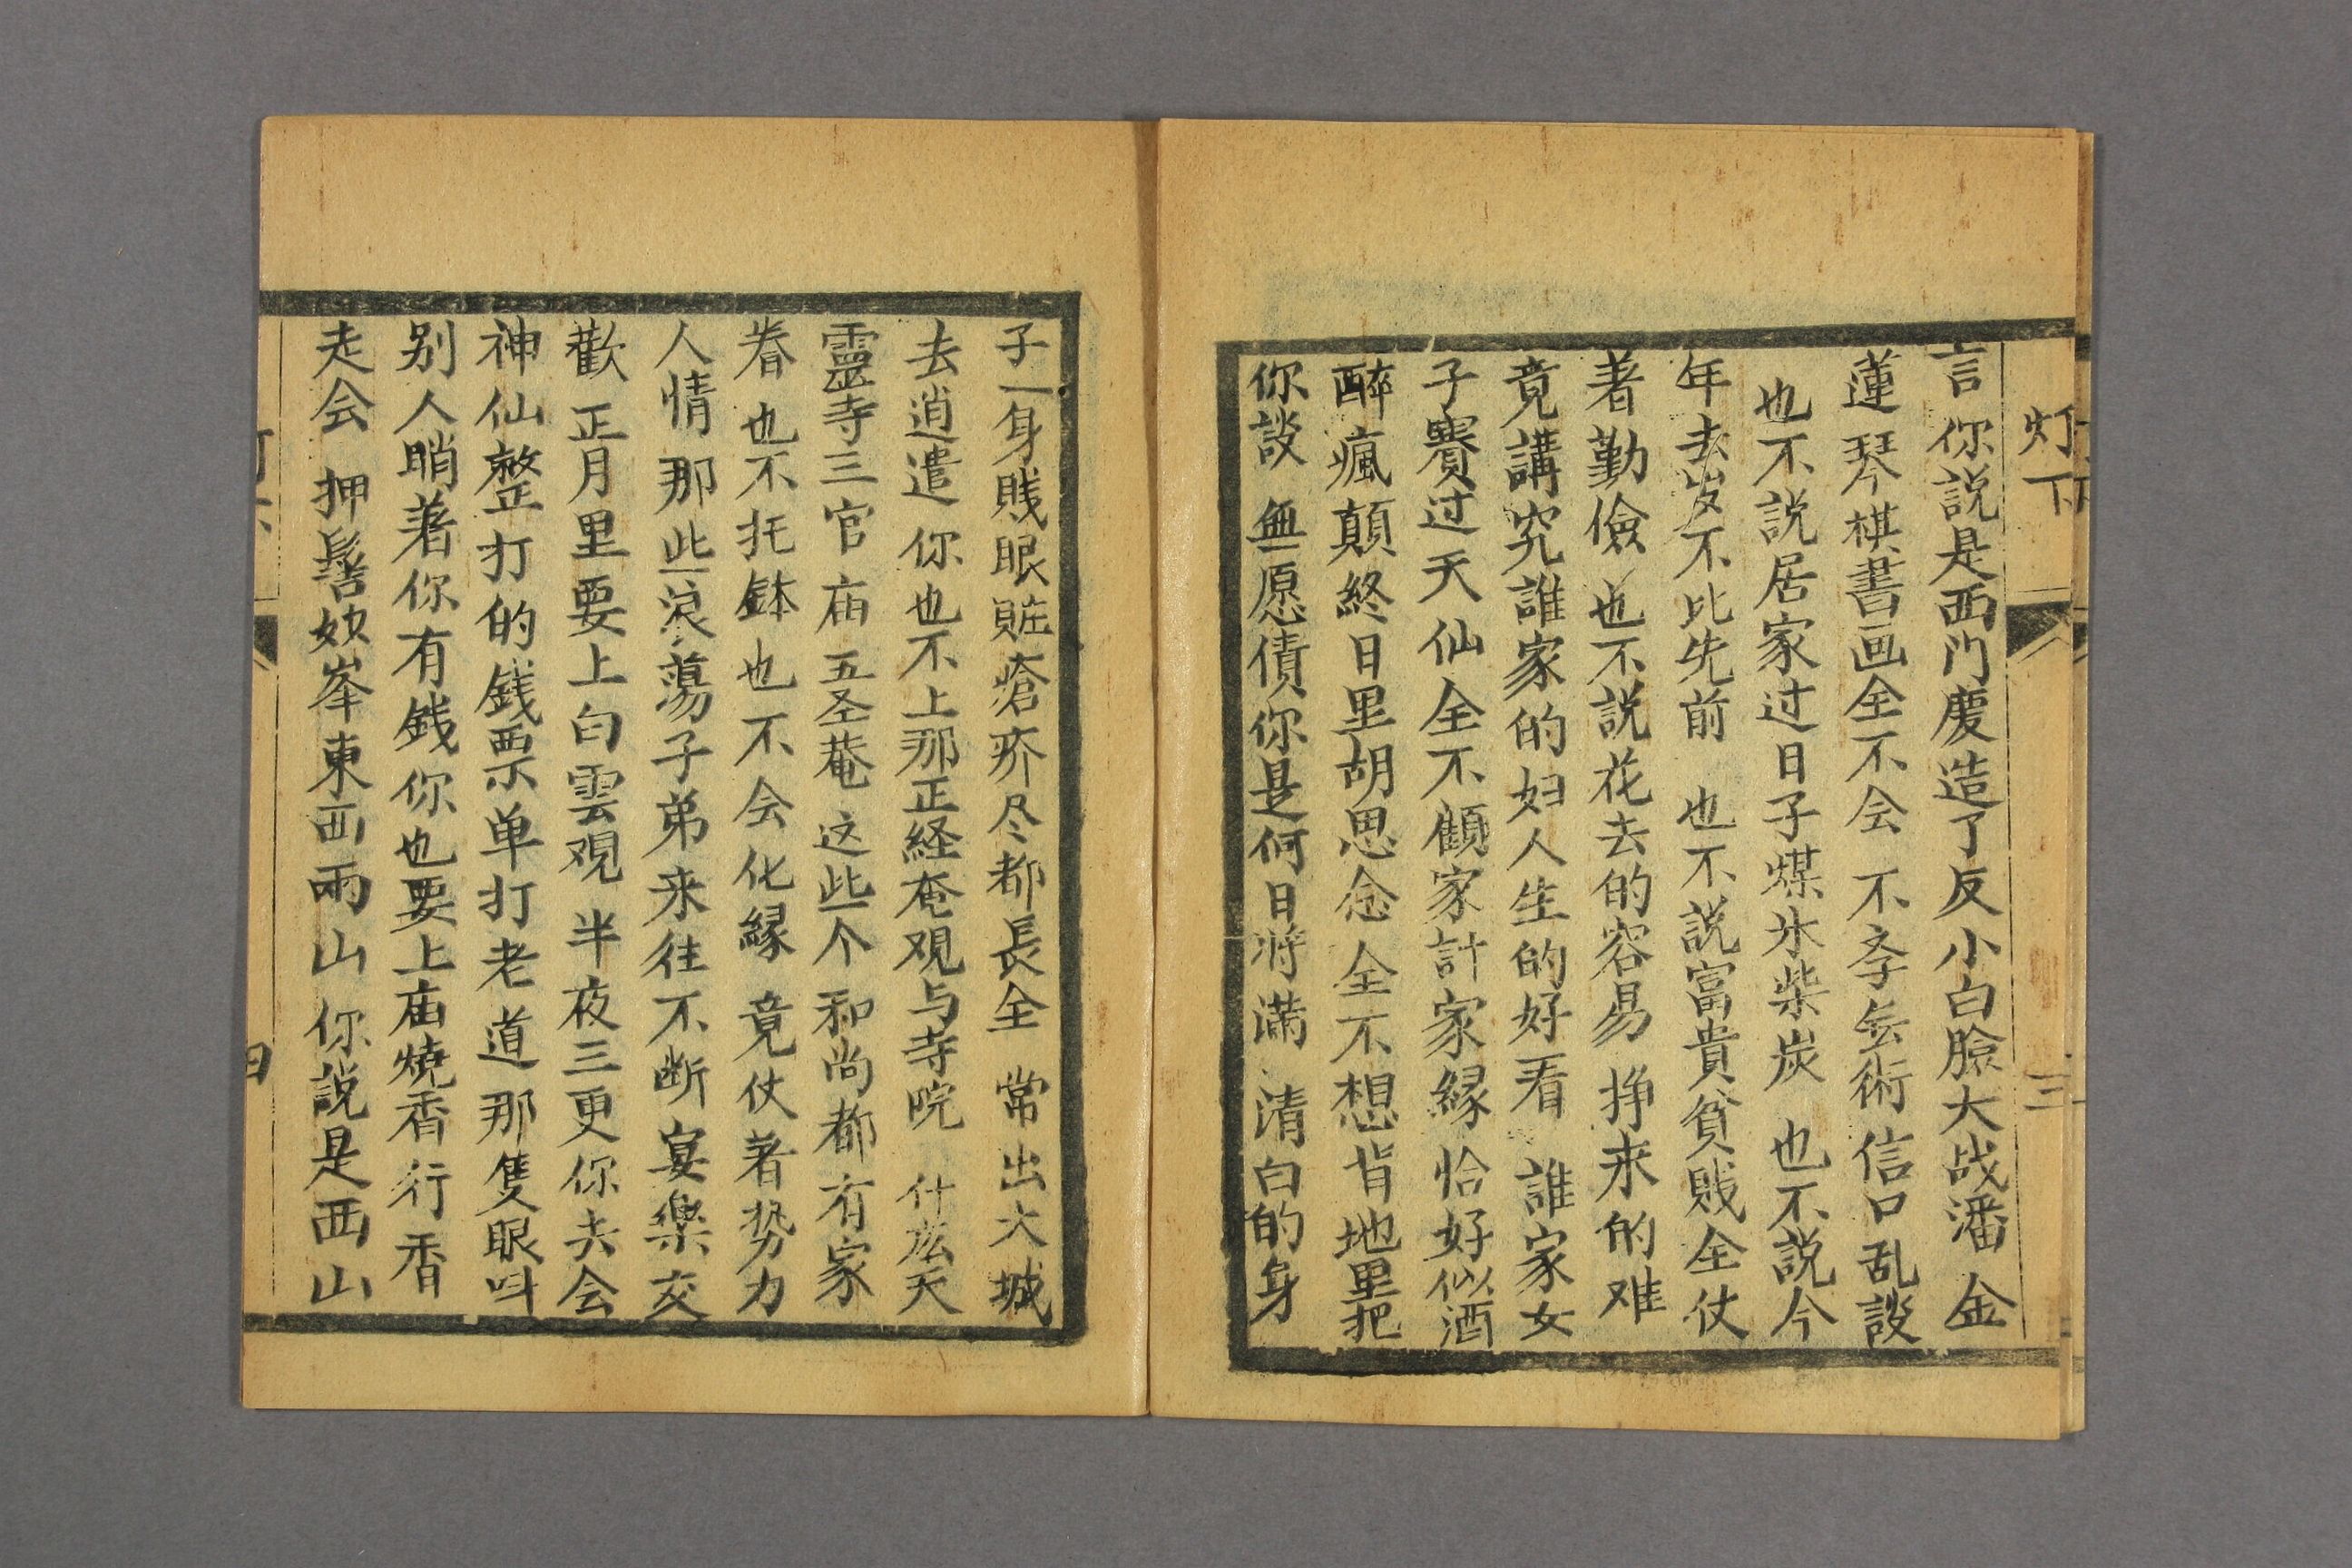 灯下
三
言 你説是西门慶造了反小白臉大战潘金
蓮 琴棋書画全不会 不孝無術 信口乱談
也不説居家过日子煤氷柴炭 也不説今
年去岁不比先前 也不説富貴貧贱全仗
著勤儉 也不説花去的容易 挣来的难
竟講究誰家的妇人生的好看 誰家女
子賽过天仙 全不顧家計家縁 恰好似酒
醉瘋顛 終日里胡思念 全不想背地里把
你談 無愿債 你是何日將满 清白的身
子一身賎眼賍瘡疥尽都長全 常出大城
去逍遣 你也不上那正経奄覌与寺院 什庅天
靈寺三官庙 五圣菴 这些个和尚都有家
眷 也不托鉢 也不会化縁 竟仗著势力
人情 那些浪蕩子弟来往不断 宴樂交
歡 正月里要上白雲覌 半夜三更你去会
神仙 整打的銭票单打老道那隻眼 呌
别人哨著你有銭 你也要上庙燒香行香
走会 押髻妙峯東西兩山 你説是西山
四